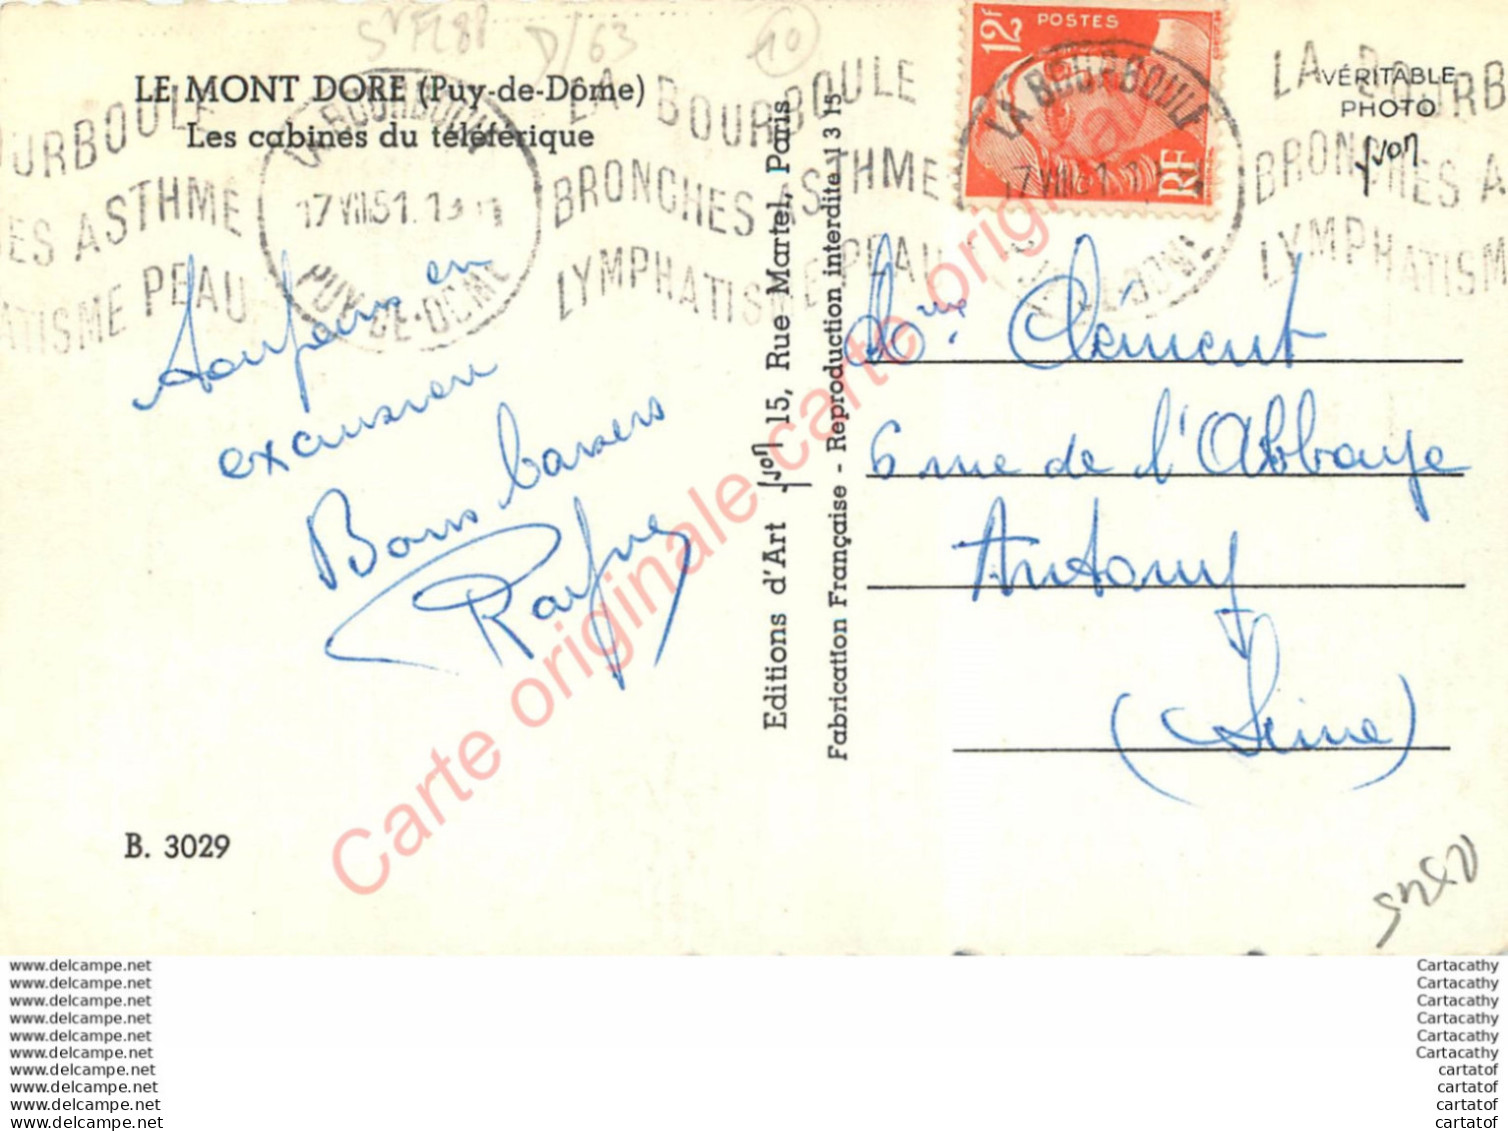 LE MONT DORE (Puy-de-Dôme)
Les cabines du téléférique
LA BOURBOULE
17 VIII 51
PUY-DE-DOME
OURBOULE
ES ASTHME
ATISME PEAU
LA BOURBOULE
BRONCHES ASTHME
LYMPHATISME PEAU
12F POSTES
RF
LA BOURBOULE
17 VIII 51
LA BOURB
BRONCHES A
LYMPHATISM
VÉRITABLE
PHOTO
Yvon
D/63
10
en
excursion
Bons baisers
Editions d'Art Yvon 15, Rue Martel, Paris
Fabrication Française - Reproduction interdite 1 3 15
Clément
6 rue de l'Abbaye
Antony
(Seine)
B. 3029
Carte originale carte originale
www.delcampe.net
www.delcampe.net
www.delcampe.net
www.delcampe.net
www.delcampe.net
www.delcampe.net
www.delcampe.net
www.delcampe.net
www.delcampe.net
www.delcampe.net
Cartacathy
Cartacathy
Cartacathy
Cartacathy
Cartacathy
Cartacathy
cartatof
cartatof
cartatof
cartatof